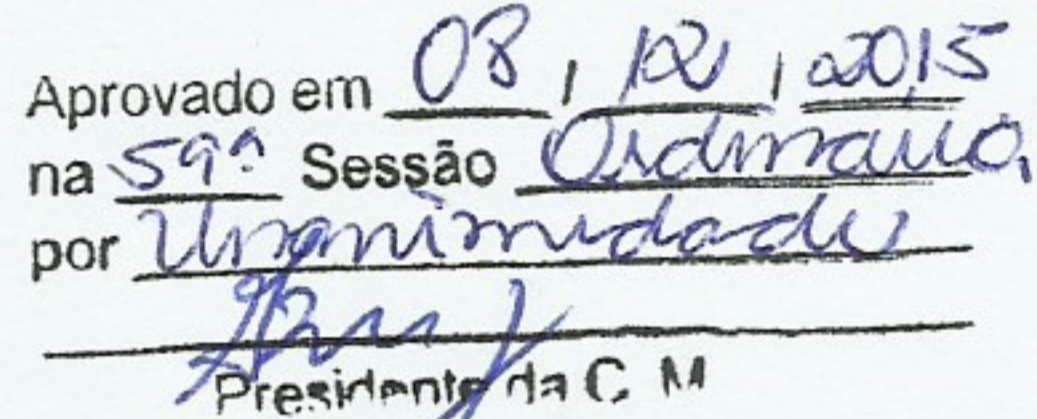 Aprovado em 08 / 12 / 2015
na 59ª Sessão Ordinária
por Unanimidade
Presidente da C. M